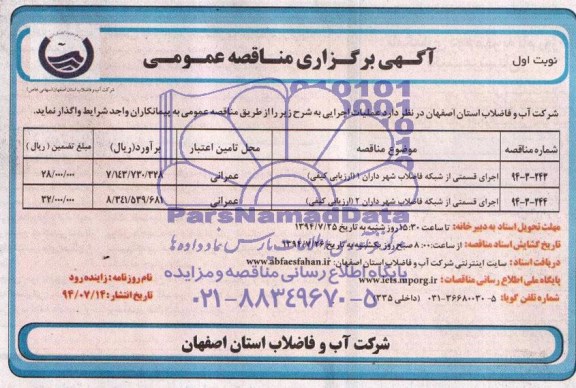 آگهی برگزاری مناقصه عمومی
نوبت اول
شرکت آب و فاضلاب استان اصفهان (سهامی خاص)
شرکت آب و فاضلاب استان اصفهان در نظر دارد عملیات اجرایی به شرح زیر را از طریق مناقصه عمومی به پیمانکاران واجد شرایط واگذار نماید.
شماره مناقصه موضوع مناقصه محل تامین اعتبار برآورد(ریال) مبلغ تضمین (ریال)
۹۴-۳-۲۴۳ اجرای قسمتی از شبکه فاضلاب شهر داران ۱ (ارزیابی کیفی) عمرانی ۷/۱۴۳/۷۳۰/۳۲۸ ۲۸/۰۰۰/۰۰۰
۹۴-۳-۲۴۴ اجرای قسمتی از شبکه فاضلاب شهر داران ۲ (ارزیابی کیفی) عمرانی ۸/۳۴۱/۵۳۹/۶۸۱ ۳۲/۰۰۰/۰۰۰
ParsNamadData
مهلت تحویل اسناد به دبیرخانه: تا ساعت ۱۵:۳۰ روز شنبه به تاریخ ۱۳۹۴/۷/۲۵
تاریخ گشایش اسناد مناقصه: از ساعت ۸:۰۰ صبح روز یکشنبه به تاریخ ۱۳۹۴/۷/۲۶
دریافت اسناد: سایت اینترنتی شرکت آب و فاضلاب استان اصفهان: www.abfaesfahan.ir
پایگاه ملی اطلاع رسانی مناقصات: www.iets.mporg.ir
شماره تلفن گویا: ۵-۳۶۶۸۰۰۳۰-۰۳۱ (داخلی ۳۳۵)
پایگاه اطلاع رسانی مناقصه و مزایده
۰۲۱-۸۸۳۴۹۶۷۰-۵
نام روزنامه: زاینده رود
تاریخ انتشار: ۹۴/۰۷/۱۴
شرکت آب و فاضلاب استان اصفهان